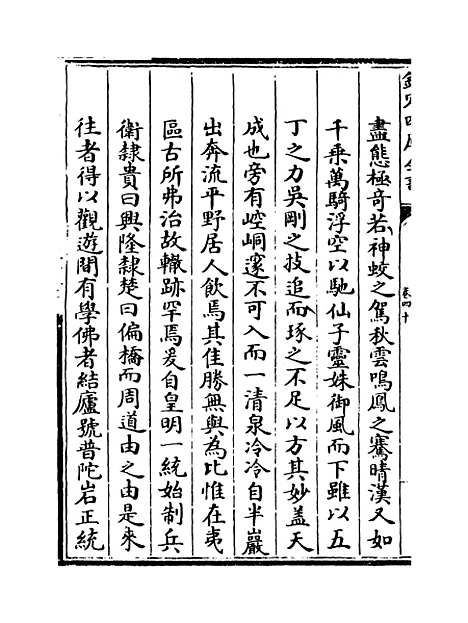 欽定四庫全書
卷四十
盡態極奇若神蛟之駕秋雲鳴鳳之騫晴漢又如
千乘萬騎浮空以馳仙子靈姝御風而下雖以五
丁之力吳剛之技追而琢之不足以方其妙蓋天
成也旁有崆峒邃不可入而一清泉泠泠自半巖
出奔流平野居人飲焉其佳勝無與為比惟在夷
區古所弗治故轍跡罕焉爰自皇明一統始制兵
衛隸貴曰興隆隸楚曰偏橋而周道由之由是来
往者得以觀遊間有學佛者結廬號普陀岩正統